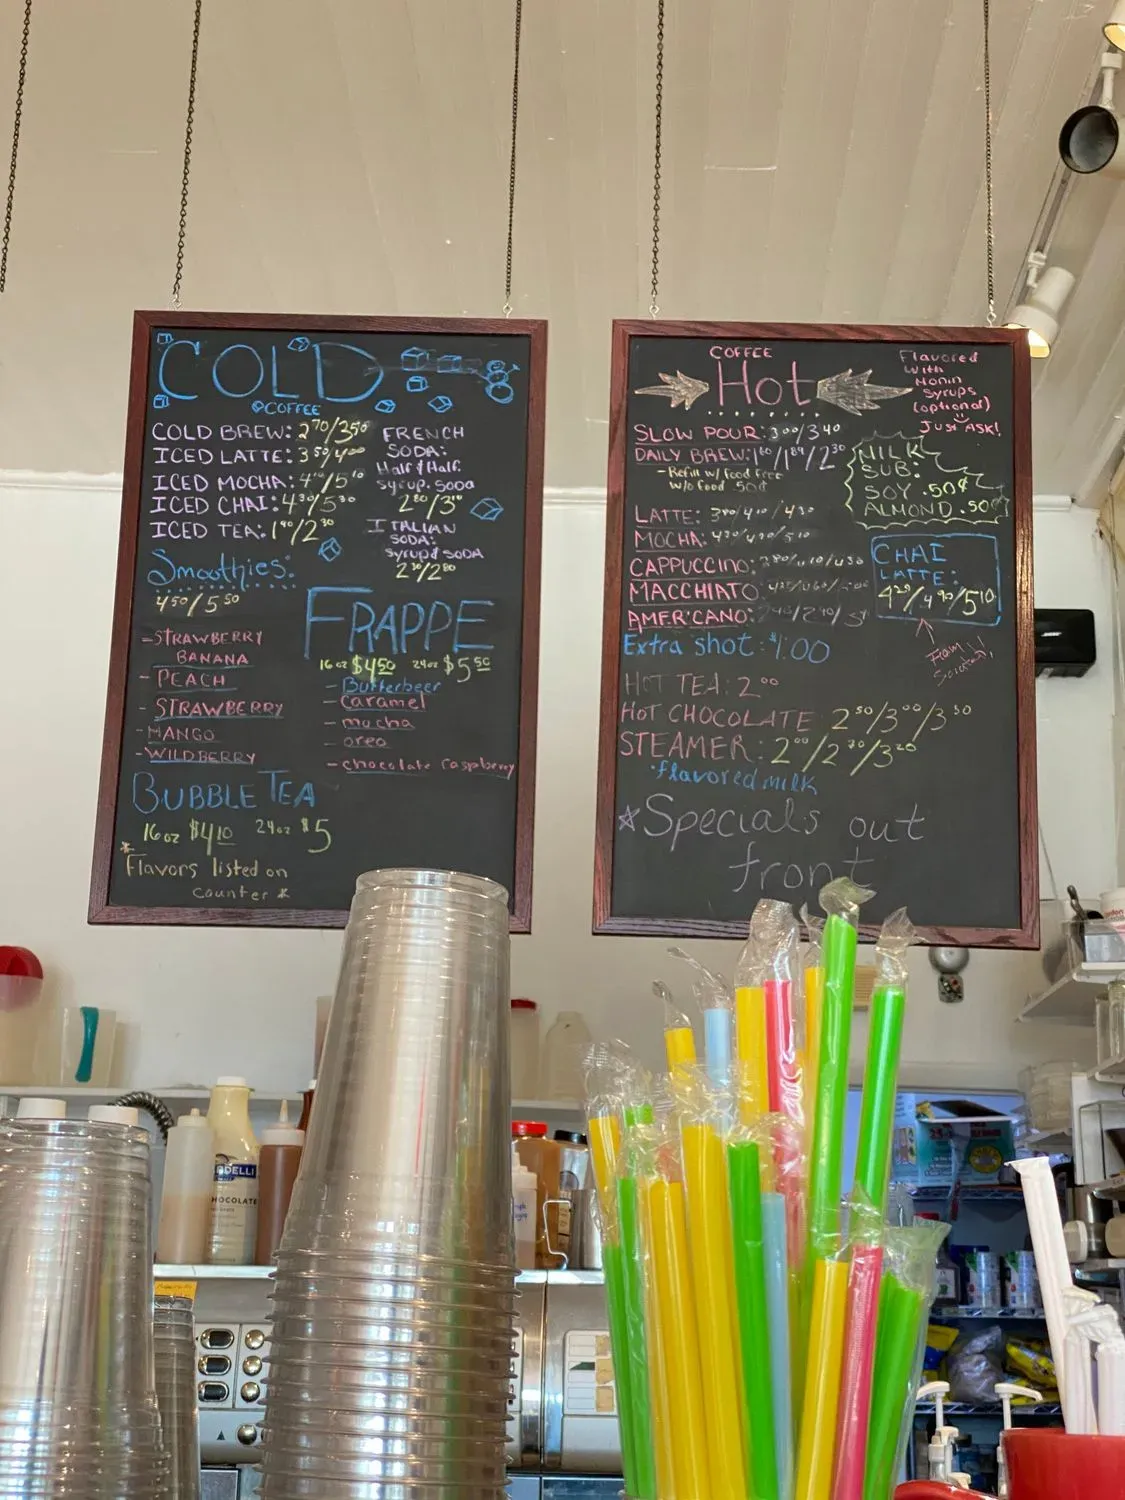 COLD
COFFEE
COLD BREW: 2⁷⁰/3⁵⁰
ICED LATTE: 3⁵⁰/4⁰⁰
ICED MOCHA: 4⁴⁰/5¹⁰
ICED CHAI: 4³⁰/5³⁰
ICED TEA: 1⁹⁰/2³⁰
FRENCH
SODA:
Half & Half.
Syrup. Soda
2⁸⁰/3⁴⁰
ITALIAN
SODA:
Syrup & SODA
2³⁰/2⁸⁰
Smoothies:
4⁵⁰/5⁵⁰
-STRAWBERRY
BANANA
- PEACH
- STRAWBERRY
-MANGO
-WILDBERRY
FRAPPE
16oz $4⁵⁰ 24oz $5⁵⁰
- Butterbeer
- caramel
- mocha
- oreo
- chocolate raspberry
BUBBLE TEA
16oz $4¹⁰ 24oz $5
*Flavors listed on
counter *
COFFEE
Hot
Flavored
With
Monin
Syrups
(optional)
JUST ASK!
SLOW POUR: 3⁰⁰/3⁴⁰
DAILY BREW: 1⁶⁰/1⁸⁹/2³⁰
-Refill w/ food Free
w/o food .50¢
MILK
SUB:
SOY .50¢
ALMOND .50¢
LATTE:
MOCHA:
CAPPUCCINO:
MACCHIATO:
AMER'CANO:
Extra shot: $1.00
CHAI
LATTE:
4²⁰/4⁹⁰/5¹⁰
From
Scratch!
HOT TEA: 2⁰⁰
HOT CHOCOLATE 2⁵⁰/3⁰⁰/3⁵⁰
STEAMER: 2⁰⁰/2⁷⁰/3²⁰
·flavored milk
*Specials out
front
DELLI
HOCOLATE
BOSE